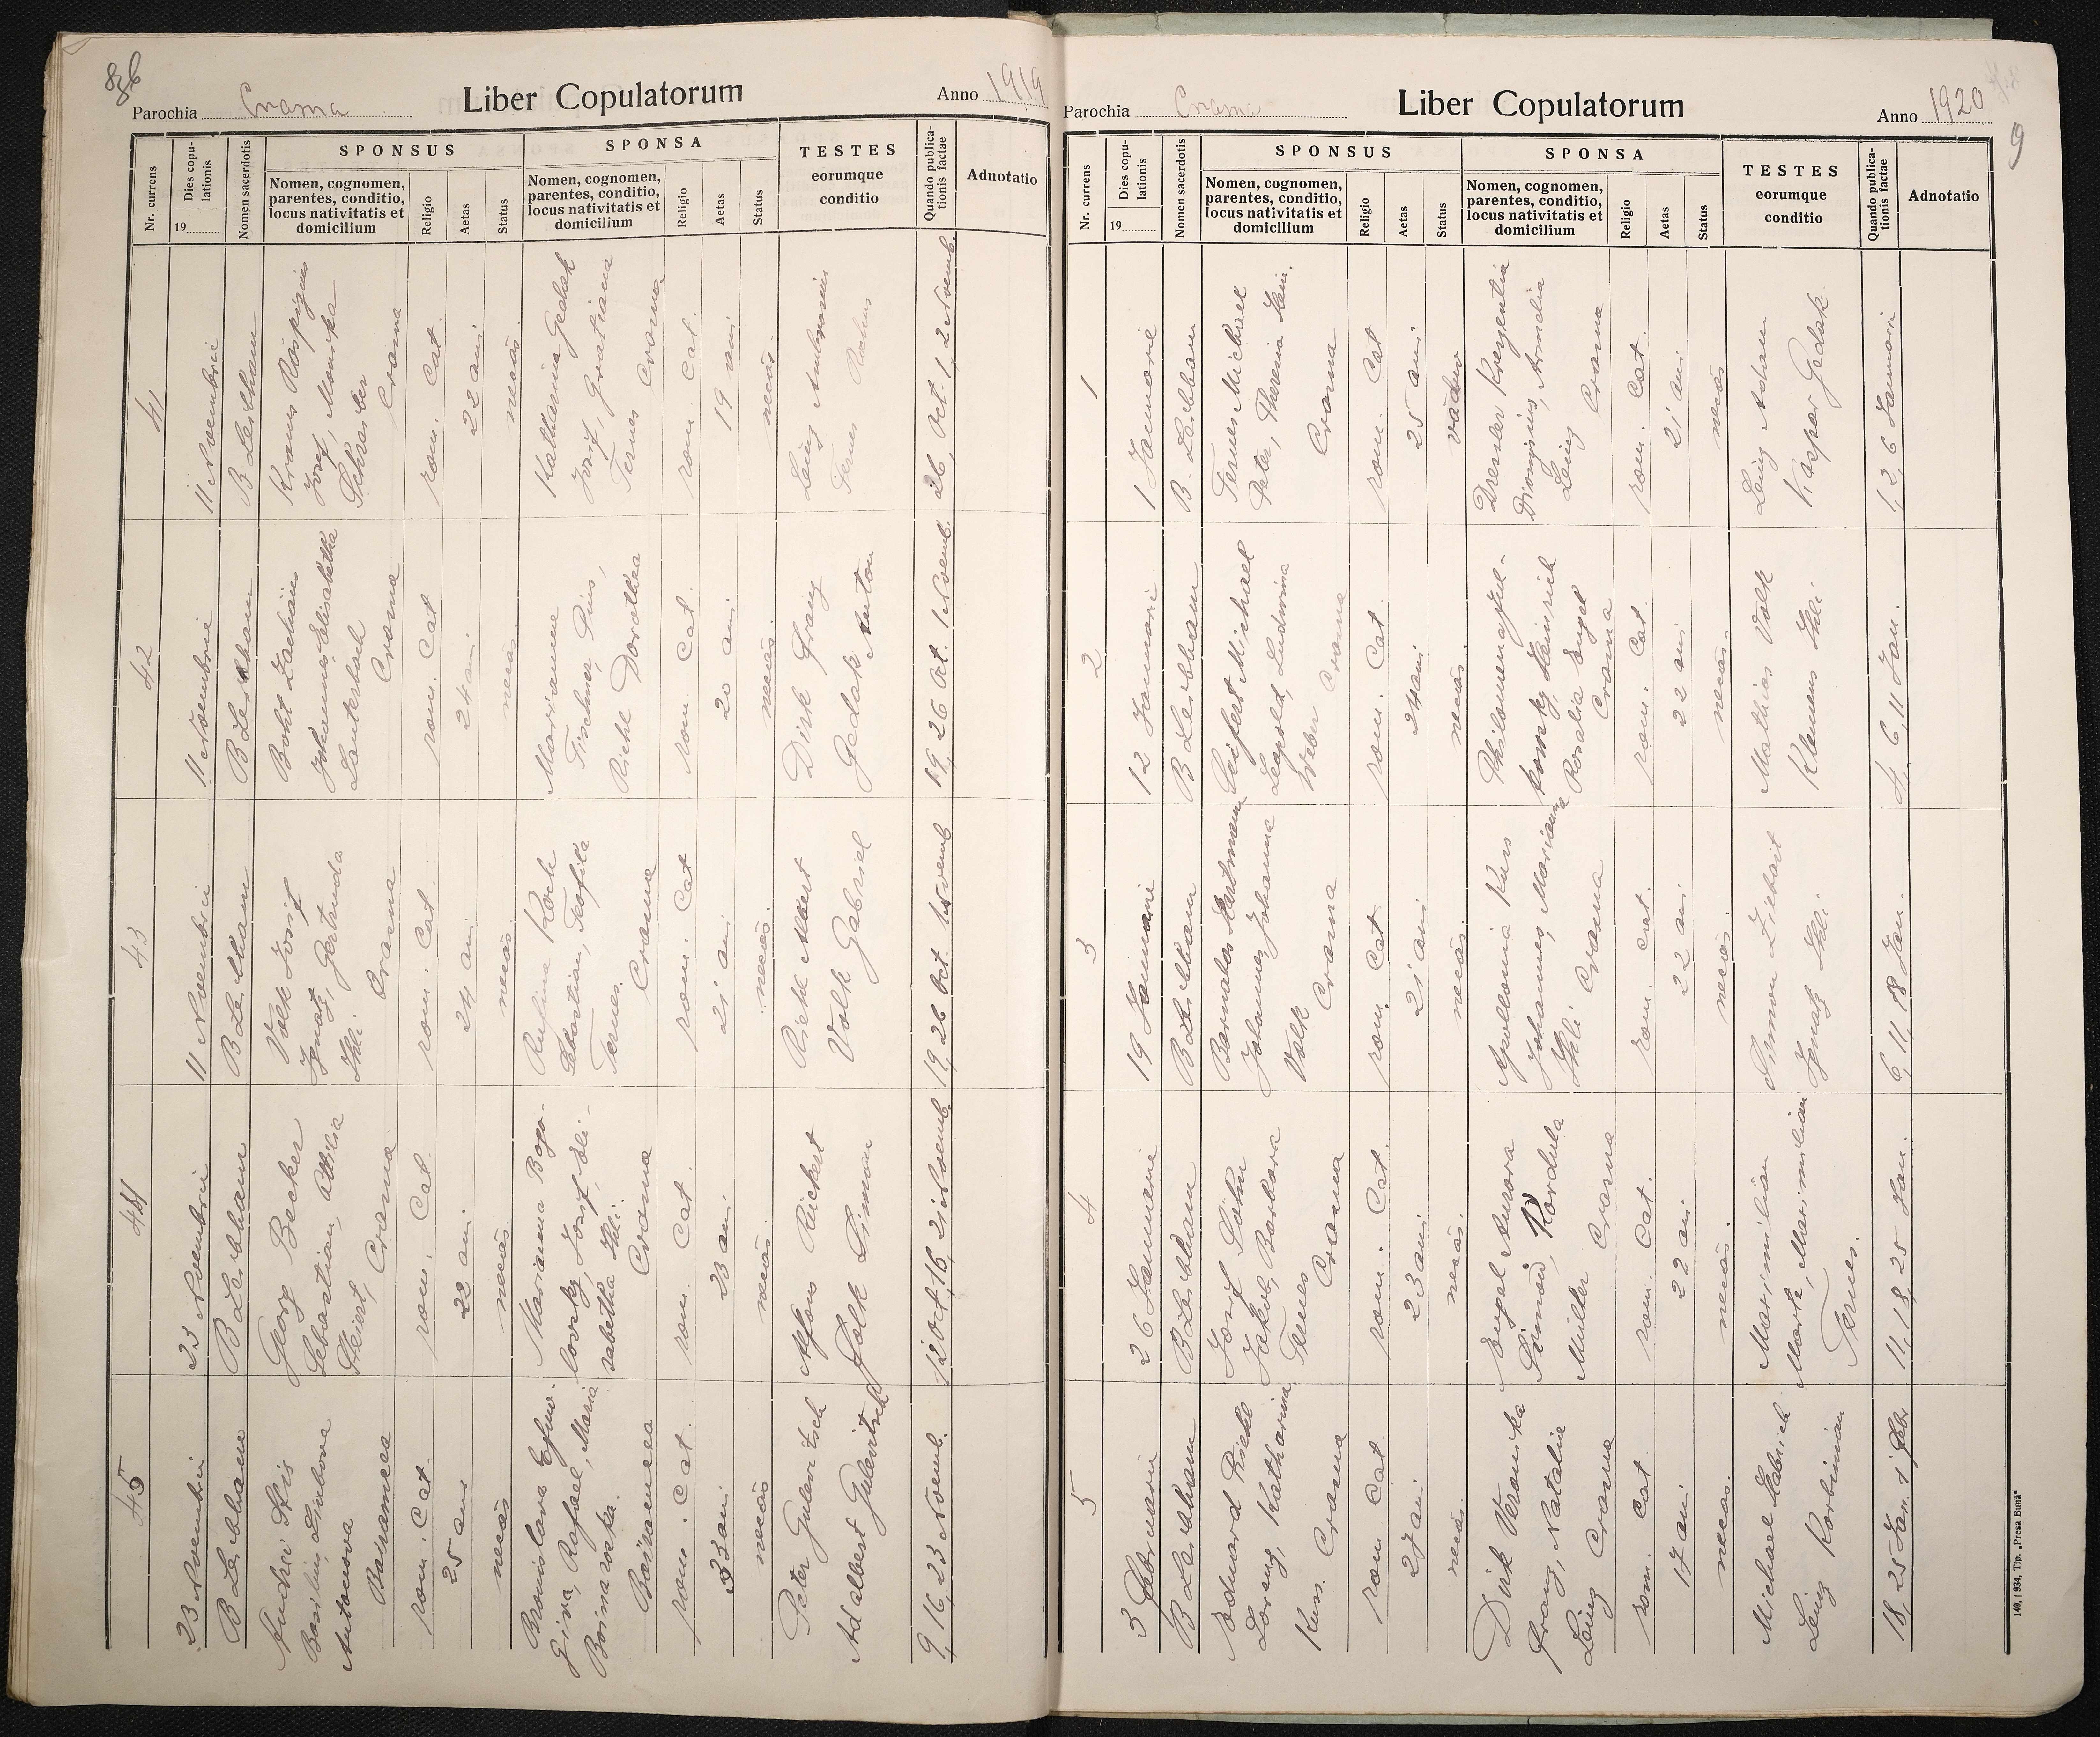 8b
Parochia Crasna
Liber Copulatorum
Anno 1919
Nr. currens
Dies copu-
lationis
19
Nomen sacerdotis
SPONSUS
Nomen, cognomen,
parentes, conditio,
locus nativitatis et
domicilium
Religio
Aetas
Status
SPONSA
Nomen, cognomen,
parentes, conditio,
locus nativitatis et
domicilium
Religio
Aetas
Status
TESTES
eorumque
conditio
Quando publica-
tionis factae
Adnotatio
41
11 Noembrie
B Leibham
Kraus
Josef, Monika
Crasna
rom. Cat.
22 ani
necăs.
Katherina Gedak
Josif, Gratiana
Ternes Crasna
rom. Cat.
19 ani
necăs.
Leinz Ambrosius
Ternes
26 Oct. 1, 2 Noemb.
42
11 Noembrie
B Leibham
Johannes, Elisabetha
Lauterbach
Crasna
rom. Cat
24 ani
necăs.
Marianne
Tischner, Pius,
Riehl Dorothea
rom. Cat.
20 ani
necăs.
Dirk Franz
Gedak Anton
19, 26 Oct. 1 Noemb.
43
11 Noembrie
B Leibham
Volk Josif
Ignatz, Gertruda
Ihli. Crasna
rom. Cat.
24 ani
necăs.
Rufina Koch
Sebastian, Teofila
Ternes. Crasna
rom. Cat
21 ani
necăs.
Riehl Albert
Volk Gabriel
19, 26 Oct. 1 Noemb
44
23 Noembrie
B Leibham
Georg Becker
Sebastian, Otilia
Crasna
rom. Cat.
22 ani
necăs.
Mariana Bogo-
lovsky, Josif, Eli-
sabetha Ihli.
Crasna
rom. Cat.
23 ani
necăs.
Alfons Rückert
Volk Simon
12 Oct, 16, 21 Noemb.
45
23 Noembrie
B Leibham
Andrei
Basiliu, Liubova
Antonova
Bairamcea
rom. Cat.
25 ani
necăs
Bronislava
Rafael, Maria
Bairamcea
rom. Cat.
33 ani
necăs
Peter Gulevitsch
Adalbert Gulevitsch
9, 16, 23 Noemb.
Parochia Crasna
Liber Copulatorum
Anno 1920
9
Nr. currens
Dies copu-
lationis
19
Nomen sacerdotis
SPONSUS
Nomen, cognomen,
parentes, conditio,
locus nativitatis et
domicilium
Religio
Aetas
Status
SPONSA
Nomen, cognomen,
parentes, conditio,
locus nativitatis et
domicilium
Religio
Aetas
Status
TESTES
eorumque
conditio
Quando publica-
tionis factae
Adnotatio
1
1 Januarie
B. Leibham
Ternes Michael
Peter, Theresia
Crasna
rom. Cat
25 ani
văduv
Dressler Kreszentia
Dionysius, Amelia
Leinz Crasna
rom. Cat.
21 ani
necăs
Leinz Adam
Kasper Gedak
1, 2, 6 Januarie
2
12 Januarie
B Leibham
Seifert Michael
Leopold, Ludwina
Weber Crasna
rom. Cat.
24 ani
necăs.
Heinrich
Rosalia Engel
Crasna
rom. Cat
22 ani
necăs.
Mathias Volk
Klemens Ihli.
4, 6, 11 Jan.
3
19 Januarie
B Leibham
Barnabas Hartmann
Johannes, Johanna
Volk Crasna
rom. Cat
21 ani
necăs.
Apollonia Kuss
Johannes, Mariana
Ihli. Crasna
rom. Cat.
22 ani
necăs.
Simon
Ignatz Ihli.
6, 11, 18 Jan.
4
26 Januarie
B Leibham
Josif Söhn
Jakob, Barbara
Ternes Crasna
rom. Cat.
23 ani
necăs.
Engel Aurora
Simon, Kordula
Müller Crasna
rom. Cat.
22 ani.
necăs.
Maximilian
Maximilian
Ternes.
11, 18, 25 Jan.
5
3 Februarie
B Leibham
Eduard Riehl
Lorenz, Katharina
Kuss. Crasna
rom Cat.
27 ani
necăs.
Dirk Veronika
Franz, Natalia
Leinz Crasna
rom. Cat
17 ani
necăs.
Michael
Leinz Korbinian
18, 25 Jan. 1 Febr.
140, 1934, Tip. „Presa Bună"